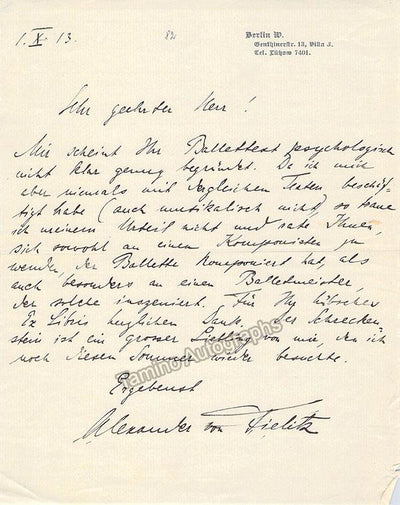 Berlin W.
Genthinerstr. 13, Villa J.
Tel. Lützow 7401.
1. X. 13.
Sehr geehrter Herr!
Mir scheint Ihr Ballettext psychologisch
nicht klar genug begründet. Da ich mich
aber niemals mit dergleichen Texten beschäf-
tigt habe (auch musikalisch nicht) so traue
ich meinem Urteil nicht und rate Ihnen,
sich sowohl an einen Komponisten zu
wenden, der Ballette komponiert hat, als
auch besonders an einen Balletmeister,
der solche insceniert. Für Ihr hübsches
Ex Libris herzlichen Dank. Der Schrecken-
stein ist ein grosser Liebling von mir, den ich
noch diesen Sommer wieder besuchte.
Ergebenst
Alexander von Fielitz
Tamino Autographs